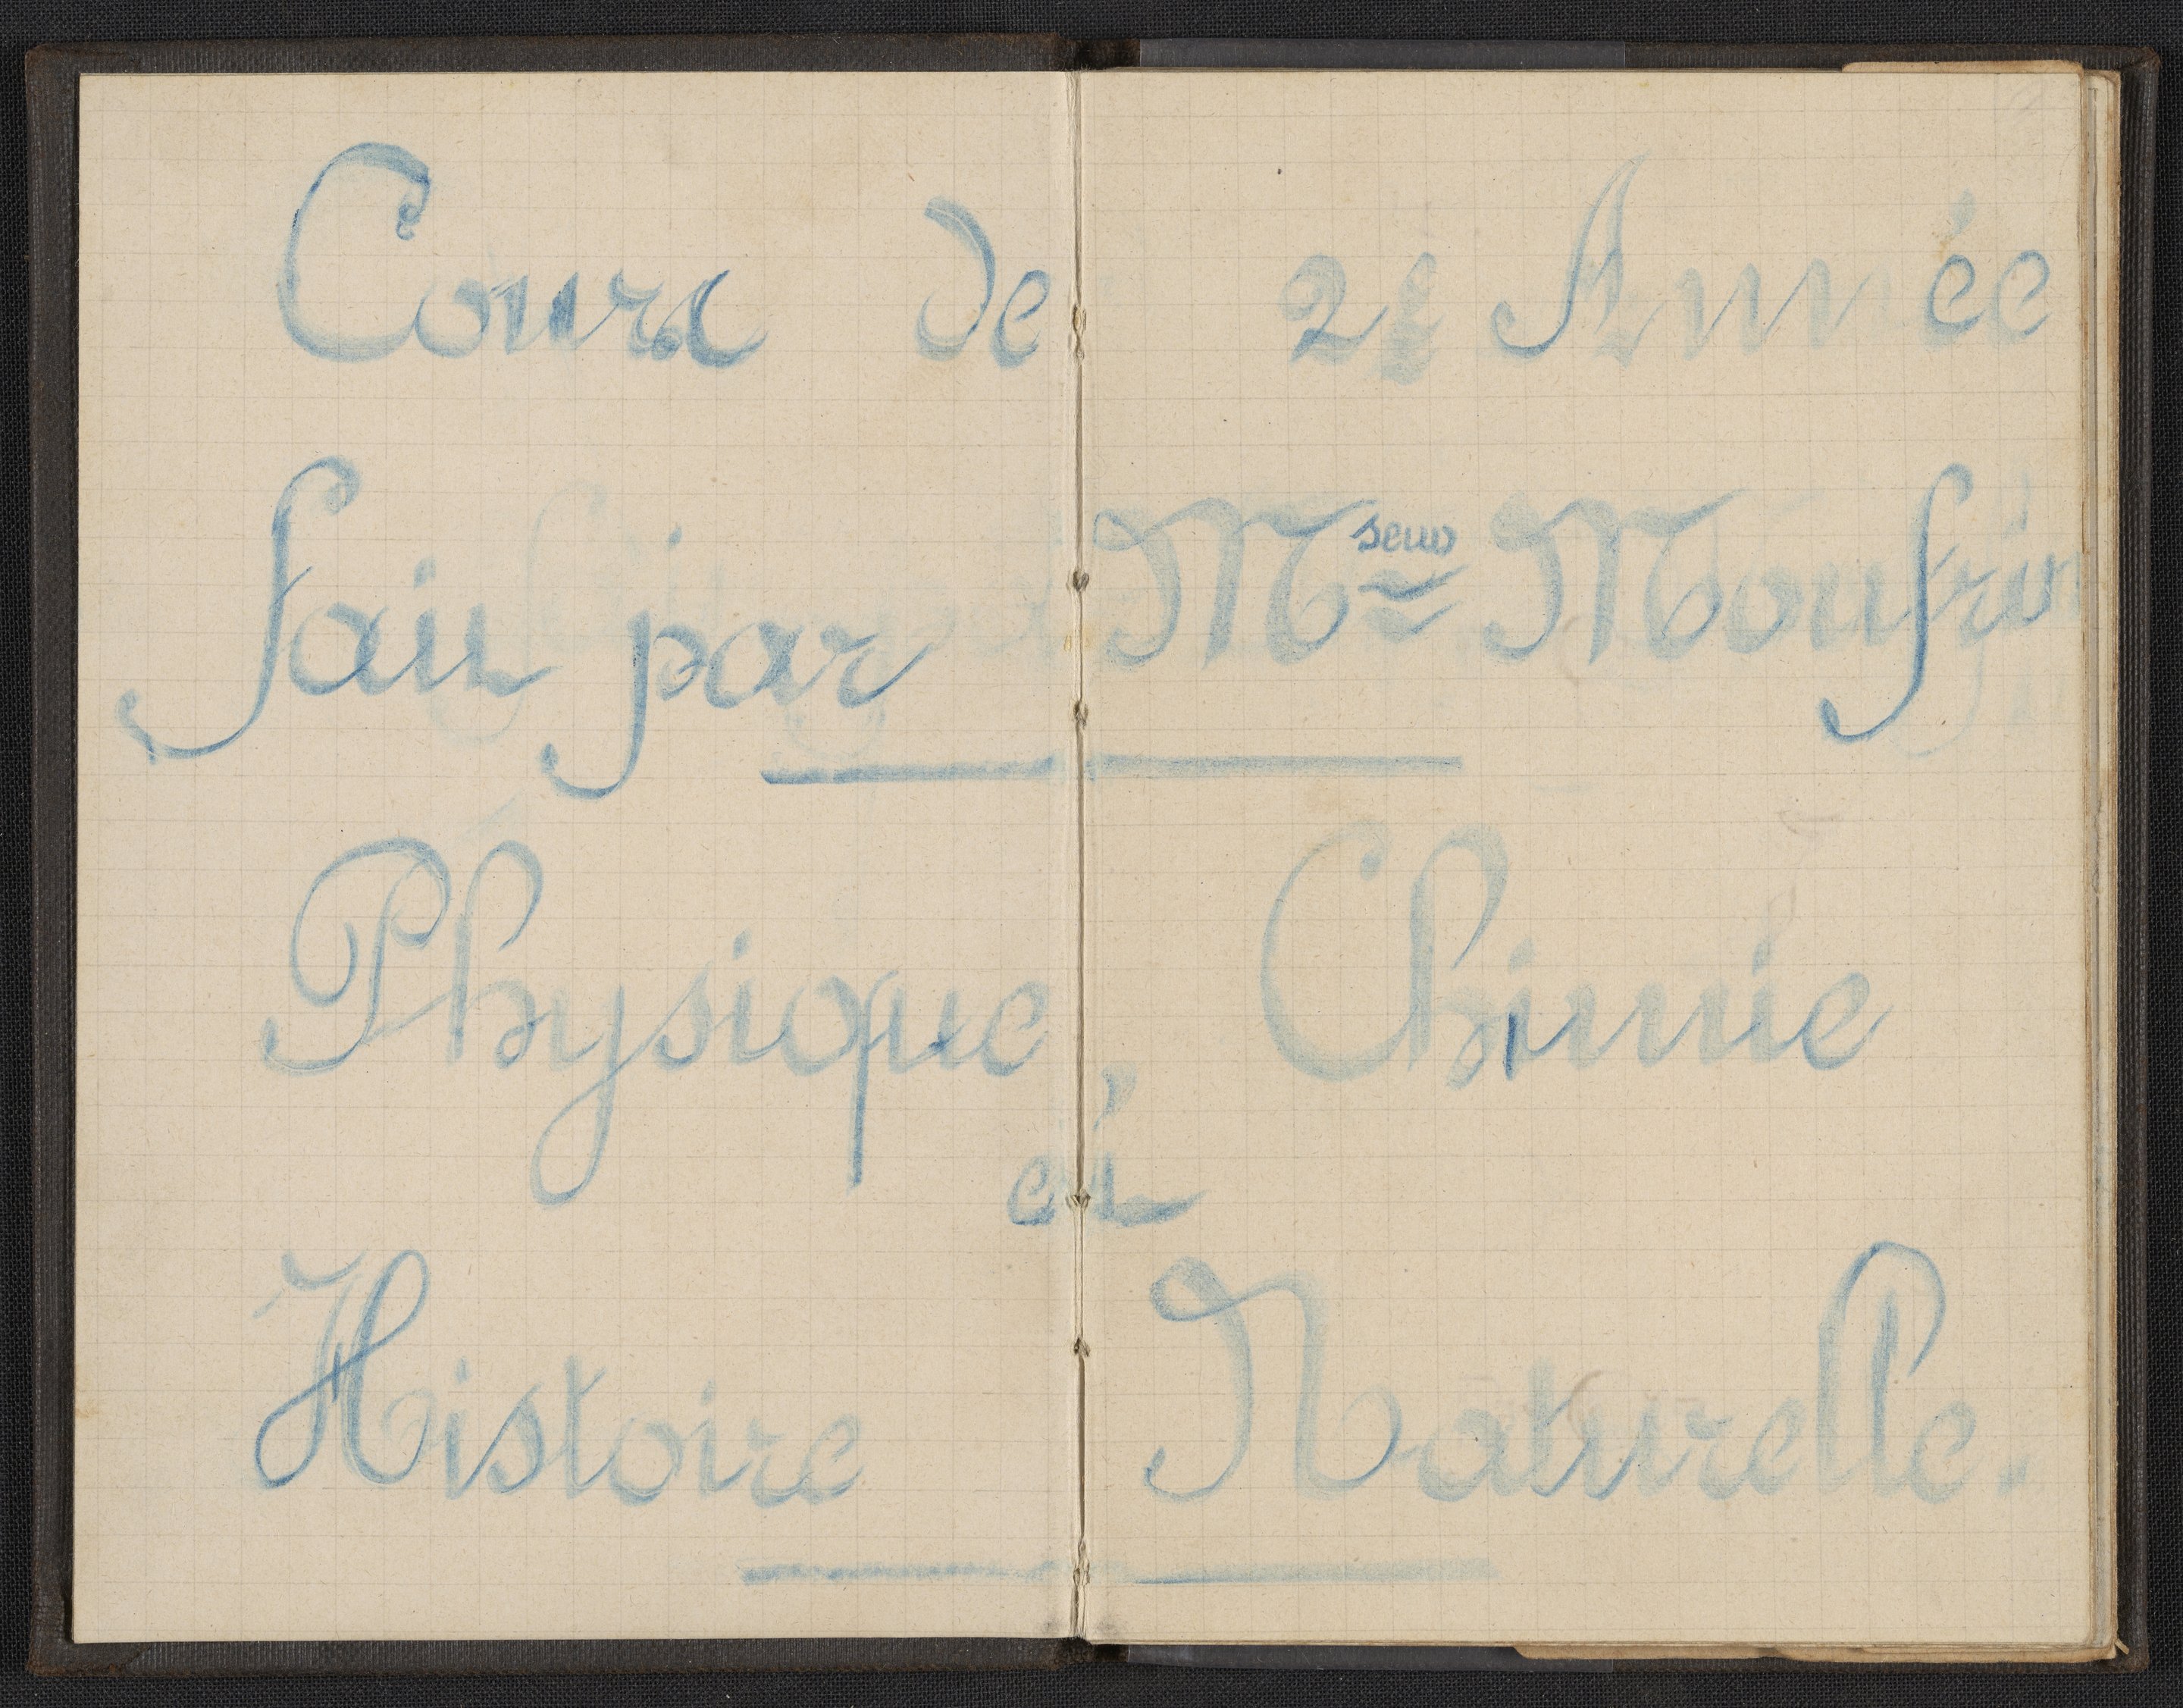 Cours de 2e Année
fait par Msieur Moufrin
Physique, Chimie
et
Histoire Naturelle.